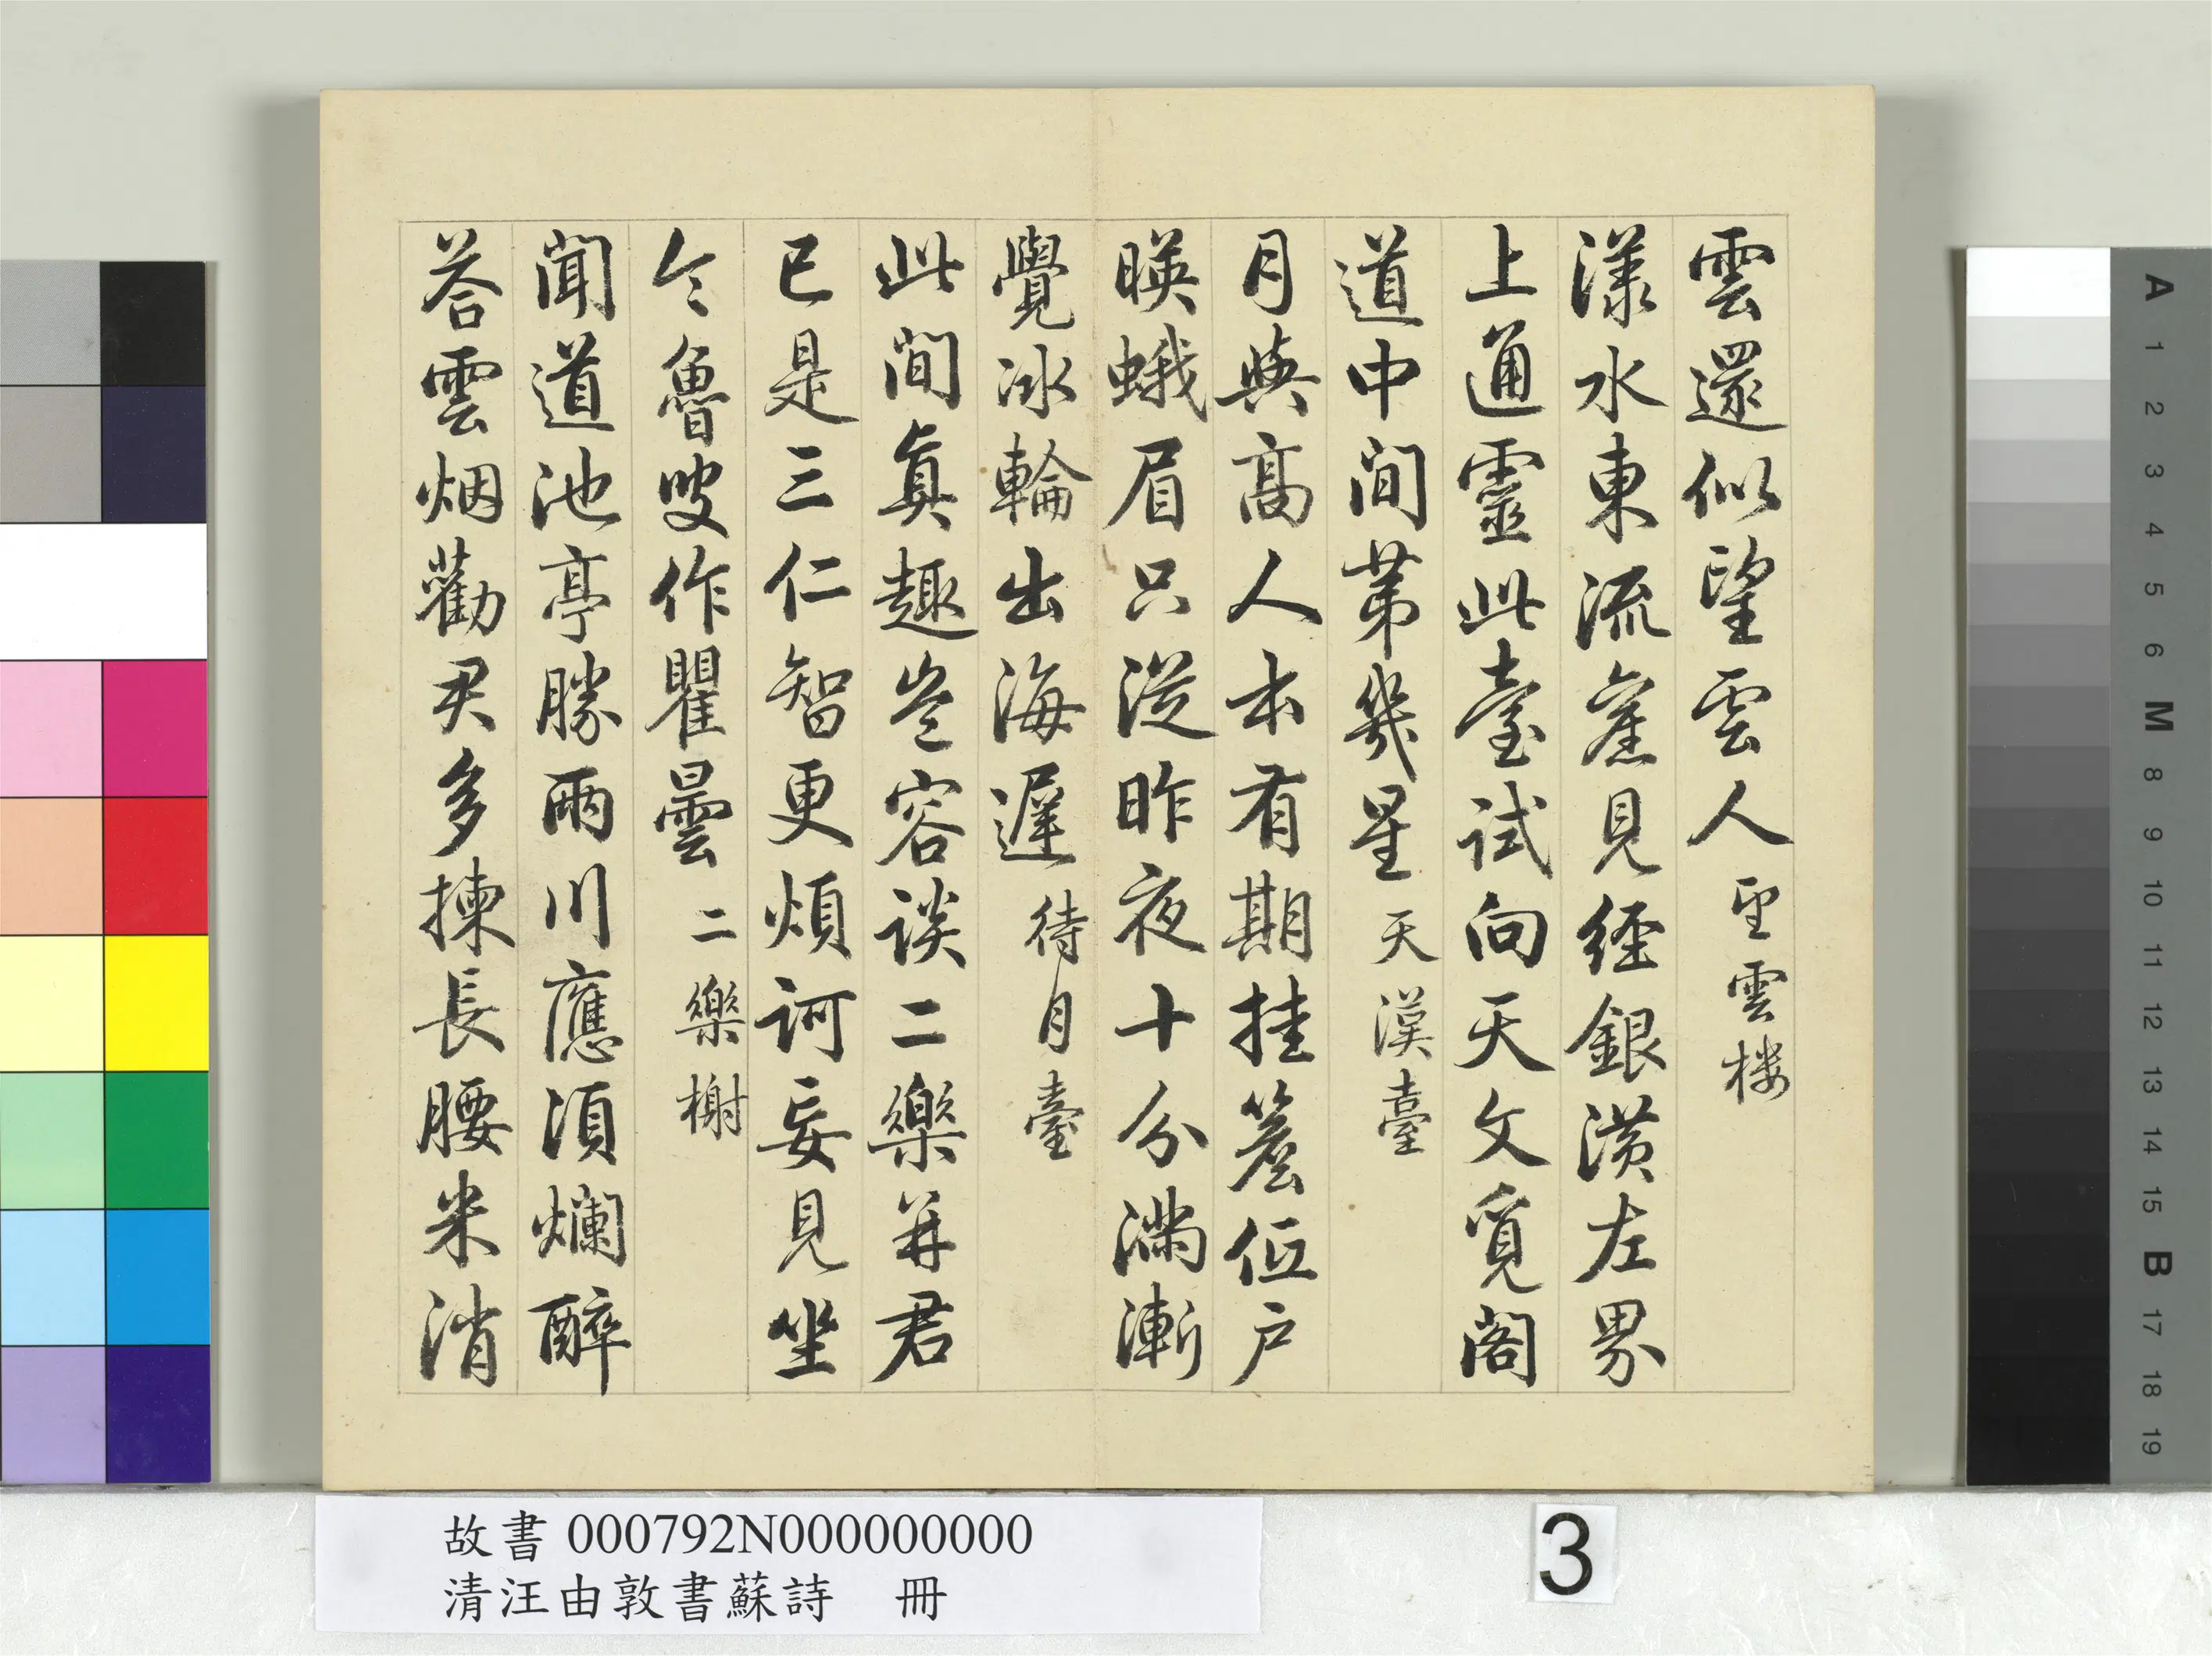 雲還似望雲人 望雲樓
漾水東流舊見經銀潢左界
上通靈此臺試向天文覓閣
道中間第幾星 天漢臺
月與高人本有期挂簷低戶
暎蛾眉只從昨夜十分滿漸
覺冰輪出海遲 待月臺
此間真趣豈容談二樂并君
已是三仁智更煩訶妄見坐
令魯叟作瞿曇 二樂榭
聞道池亭勝兩川應須爛醉
荅雲烟勸君多揀長腰米消
故書 000792N000000000
清汪由敦書蘇詩 冊
3
A
1
2
3
4
5
6
M
8
9
10
11
12
13
14
15
B
17
18
19